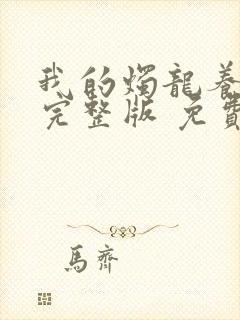 我的燭龍養
完整版 免費
馬齊